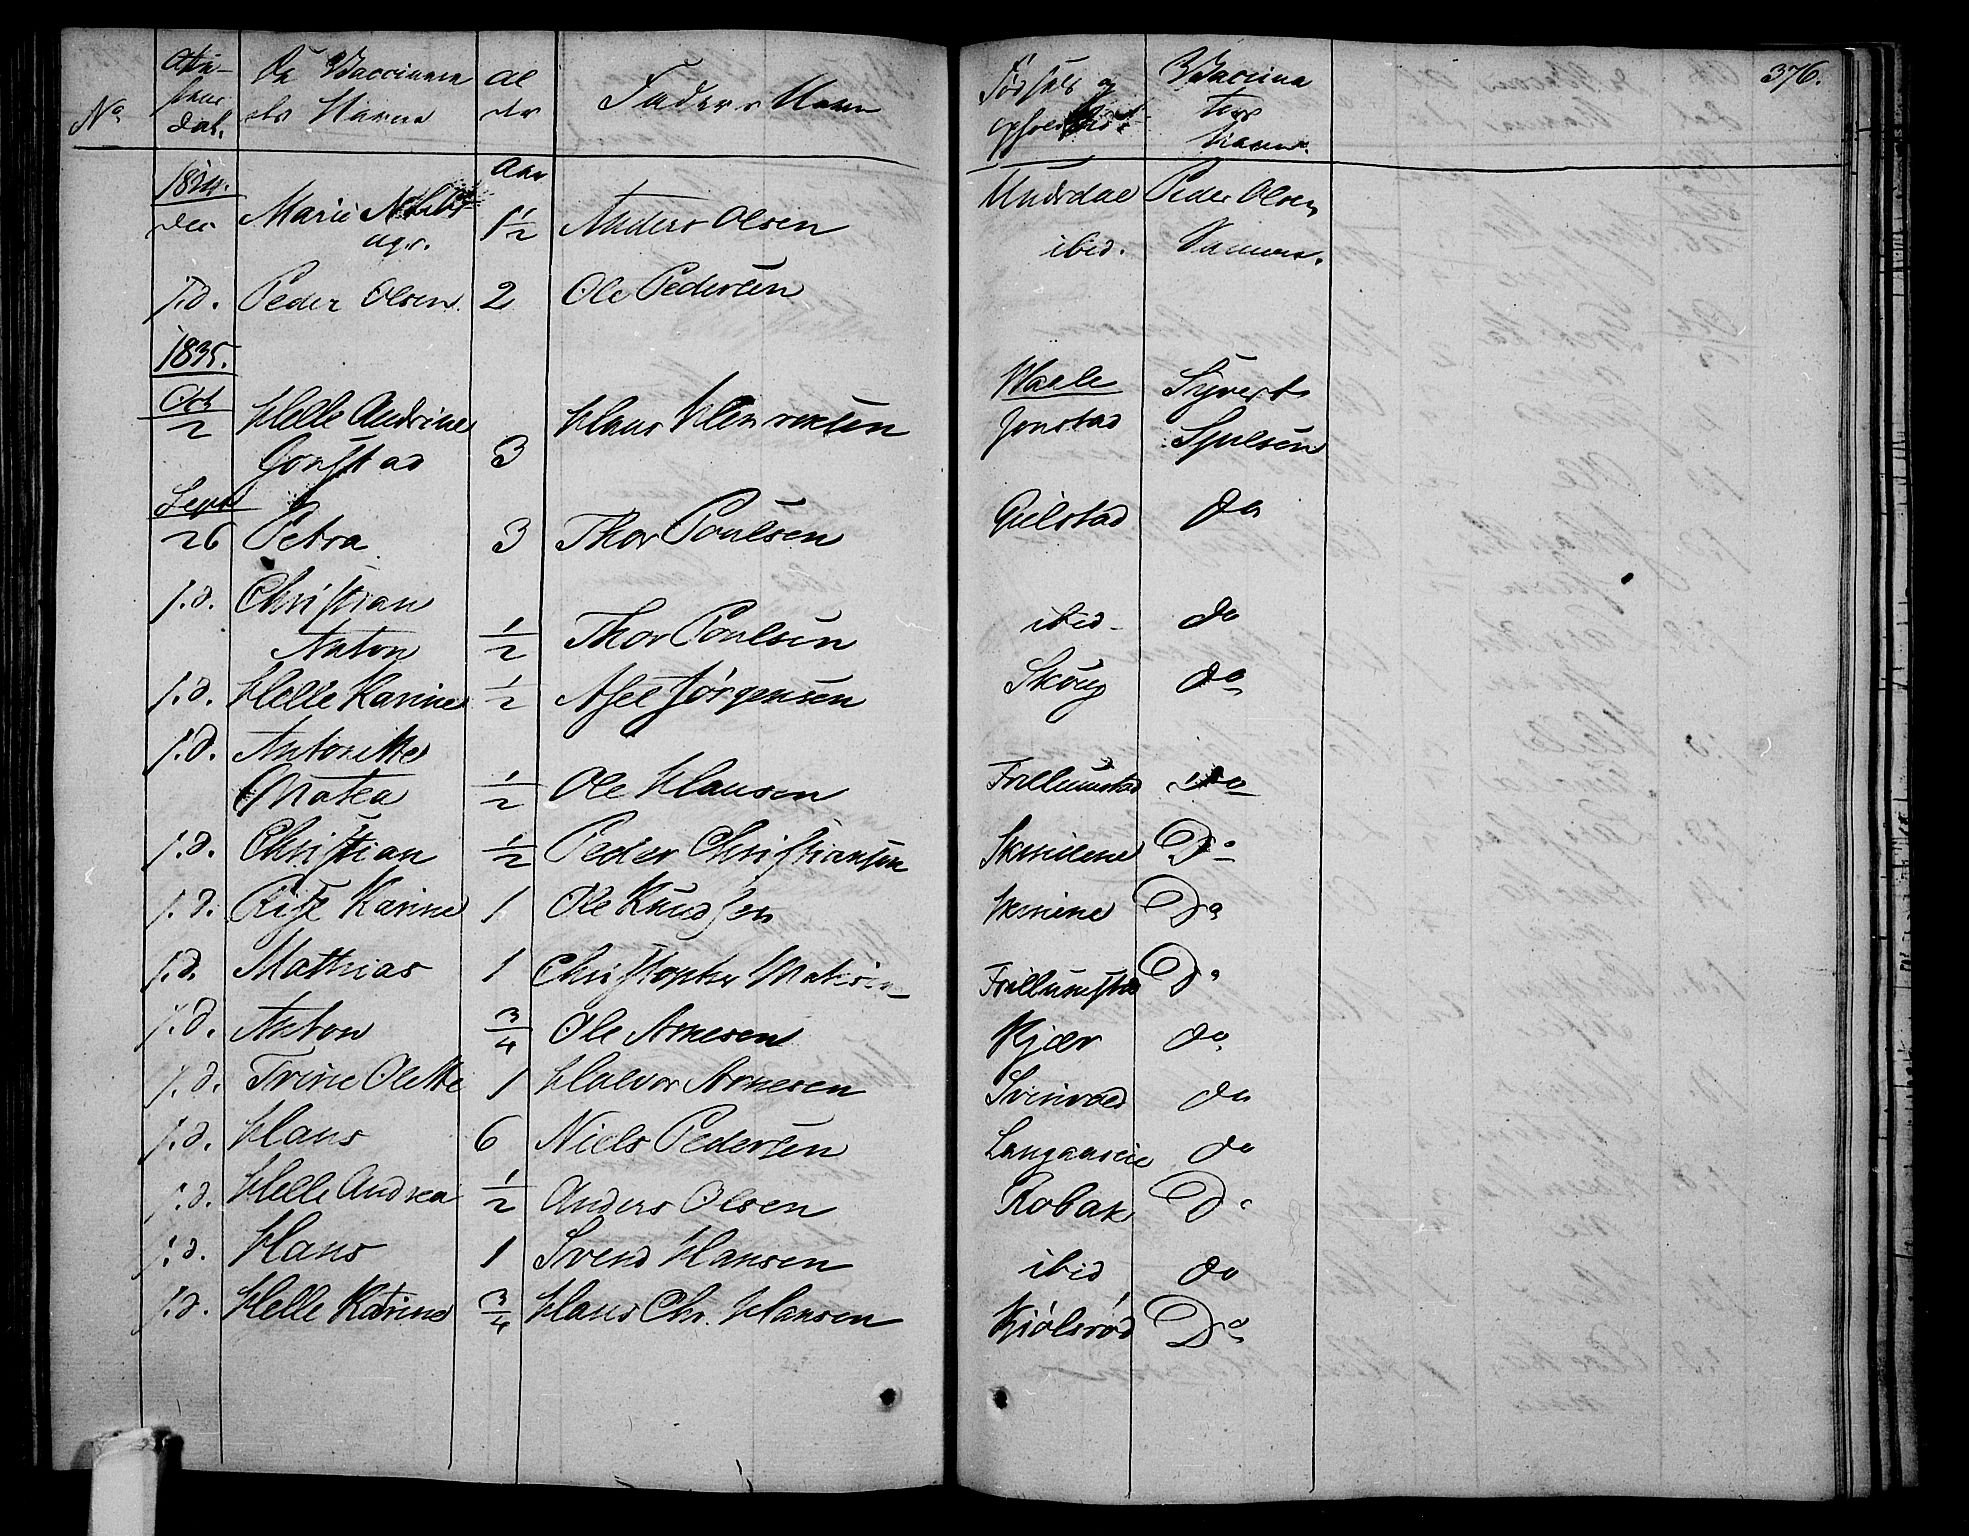 376.
No Dat. De Vaccinere des Navne Al der Faders Navn Fødsels og Vaccina teur Navn.
Aar
1834.
Dec Marie 1½ Anders Olsen Undrdal Peder Olsen
ibid.
J.d. Peder Olsen 2 Ole Pedersen
1835.
Oct 2 Helle Andrine Gonstad 3 Hans Henriksen Waale Jonstad Syvert
Sept 26 Petra 3 Thor Poulsen Gielstad do
J.d. Christian Anton ½ Thor Poulsen ibid do
J.d. Helle Karine ½ Axel Jørgensen Skoug do
J.d. Antonette Matea ½ Ole Hansen Frellumstad do
J.d. Christian ½ Peder Christiansen Do
J.d. Karine 1 Ole Knudsen Do
J.d. Mathias 1 Christopher Do
J.d. Anton ¾ Ole Arnesen Kjær do
J.d. Trine Olette 1 Halvor Arnesen Svinvoed do
J.d. Hans 6 Niels Pedersen Langaaseie do
J.d. Helle Andrea ½ Anders Olsen Robak Do
J.d. Hans 1 Svend Hansen ibid do
J.d. Helle Katrine ¾ Hans Chr. Hansen Kiølsrød Do